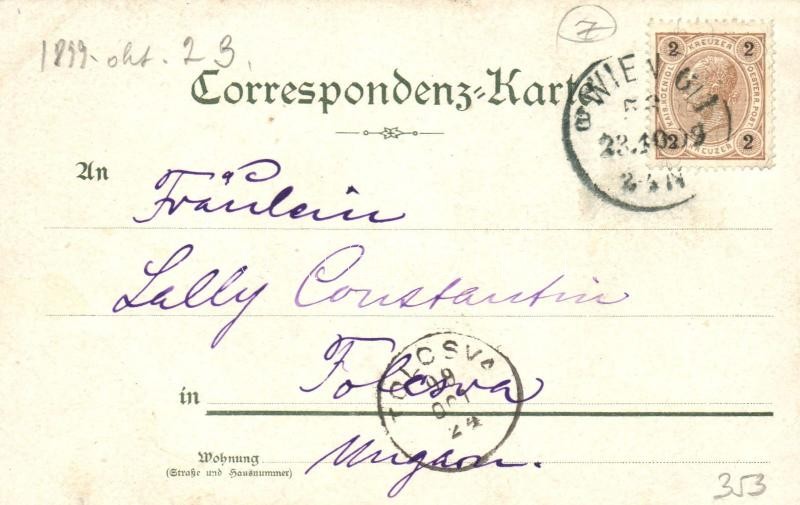 7
1899. okt. 23.
2 KREUZER 2
KAIS. KOENIGL. OESTERR. POST
2 KREUZER 2
WIEN
23.10.99
2-4N
Correspondenz-Karte
An
Fräulein
Lally Constantin
TOLCSVA
99
OCT
24
in Tolcswa
Wohnung
(Straße und Hausnummer)
Ungarn.
353